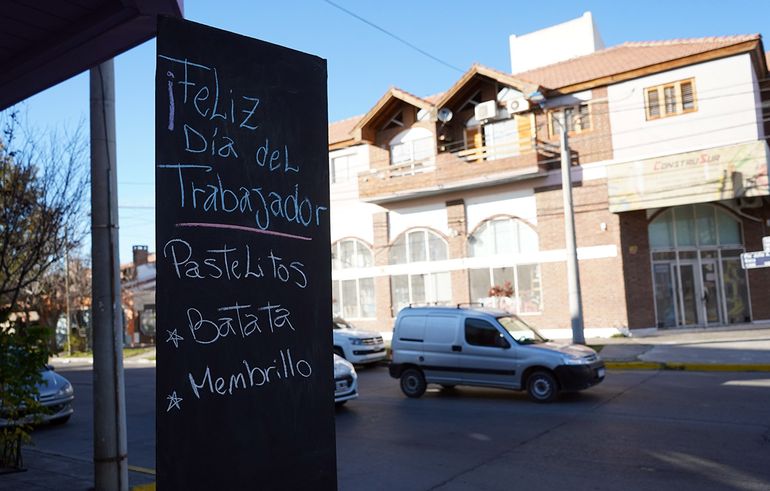 ¡Feliz
Día del
Trabajador
Pastelitos
☆ Batata
☆ Membrillo
ConstruSur